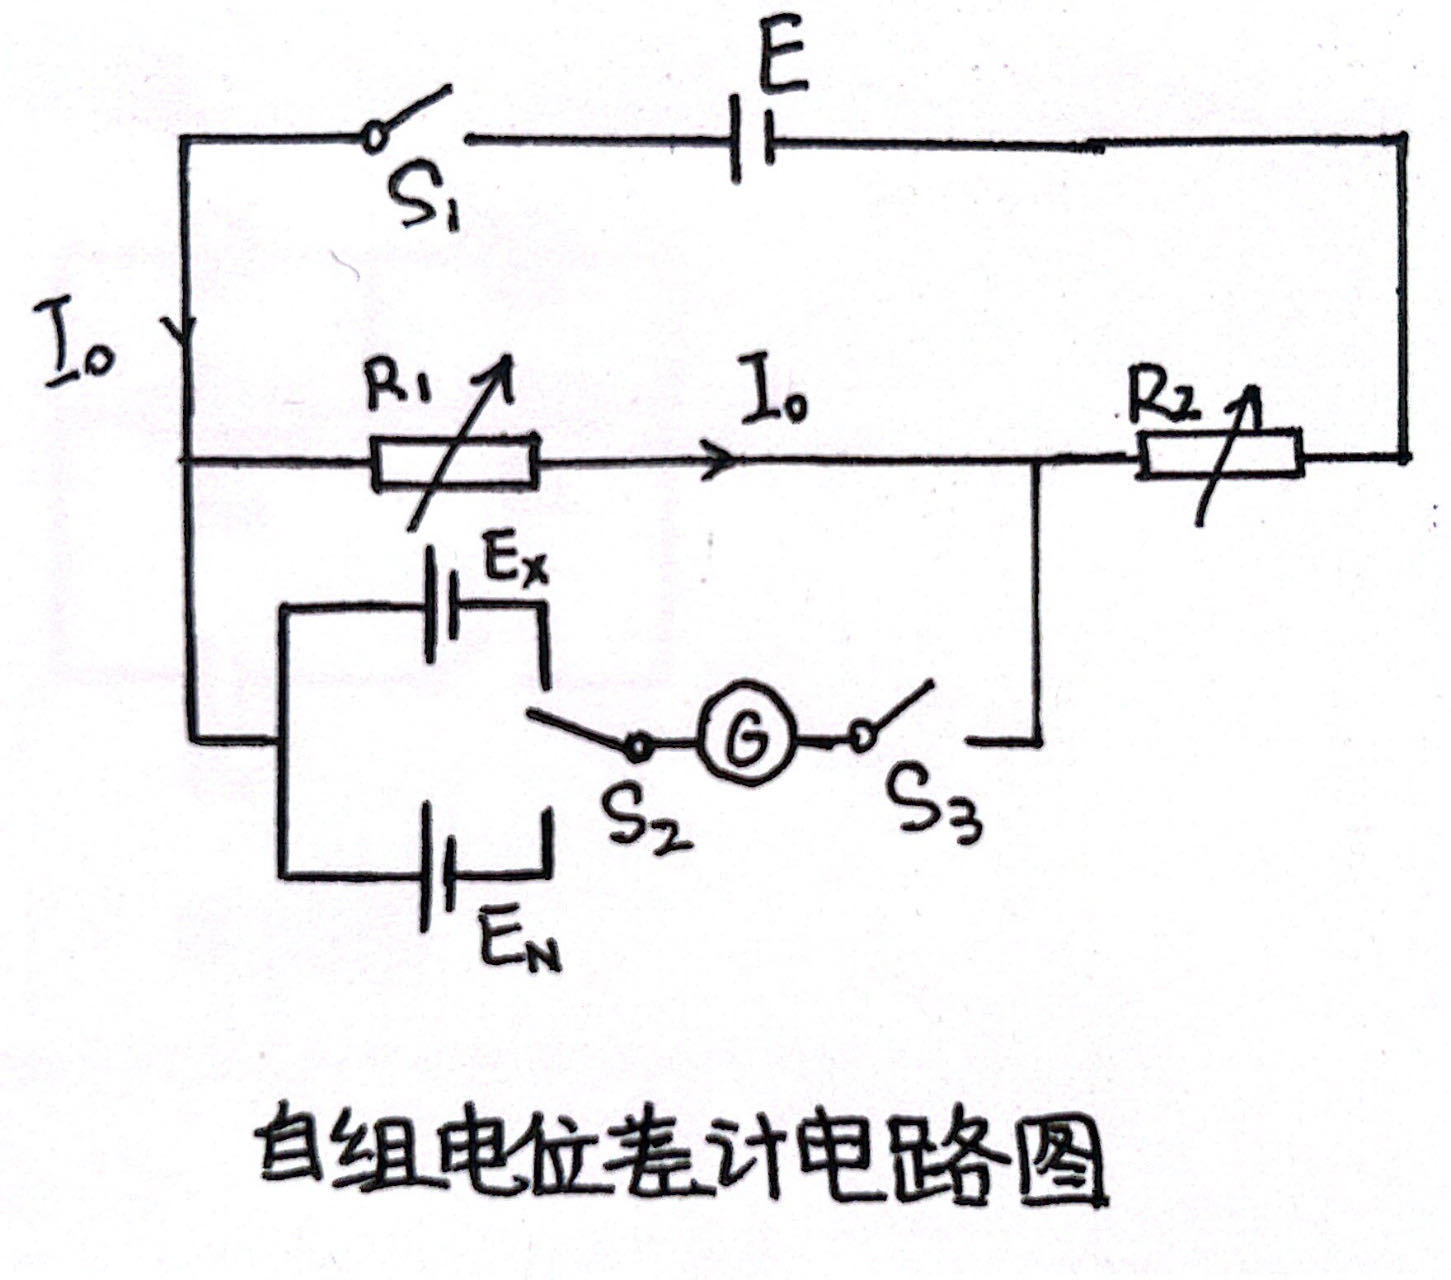 E
S₁
I₀
R₁
I₀
R₂
Eₓ
G
S₂
S₃
E_N
自组电位差计电路图